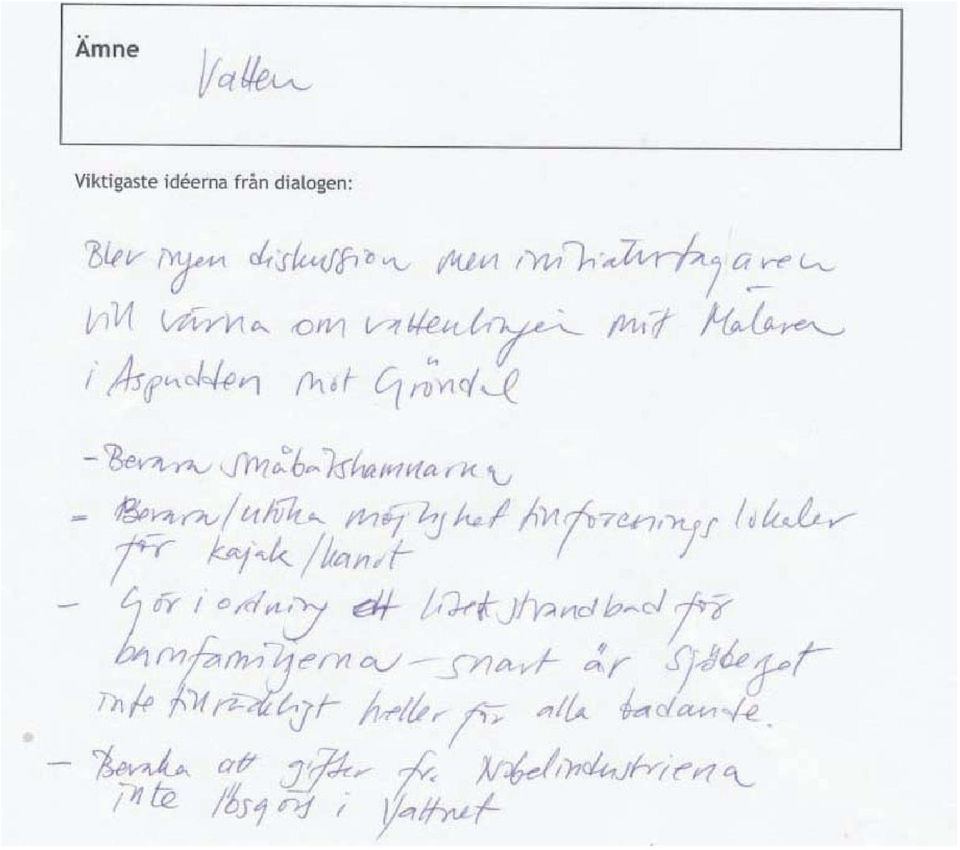 Ämne
Vatten
Viktigaste idéerna från dialogen:
Blev ingen diskussion men initiativtagaren
vill värna om vattenlinjen mot Mälaren
i Aspudden mot Gröndal
- Bevara småbåtshamnarna
- Bevara/utöka möjlighet till förenings lokaler
för kajak/kanot
- Gör i ordning ett litet strandbad för
barnfamiljerna - snart är Sjöberget
inte tillräckligt heller för alla badande.
- Bevaka att gifter fr. Nobelindustrierna
inte lösgörs i Vattnet